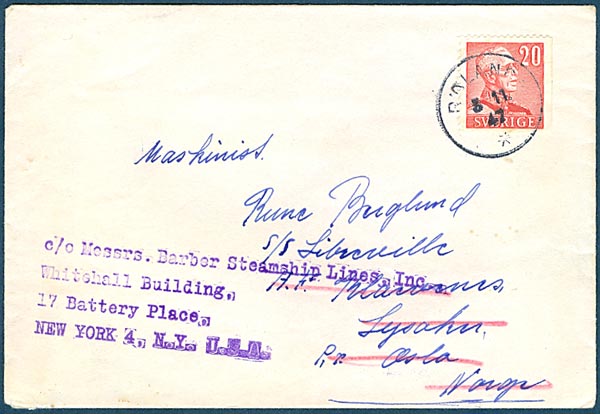 20
SVERIGE
3 11
47
Maskinist.
Rune Berglund
S/S Libreville
c/o Messrs. Barber Steamship Lines, Inc.
Whitehall Building,
17 Battery Place,
NEW YORK 4, N.Y. U.S.A.
A.F. Klaveness
Lysaker
p.r. Oslo
Norge